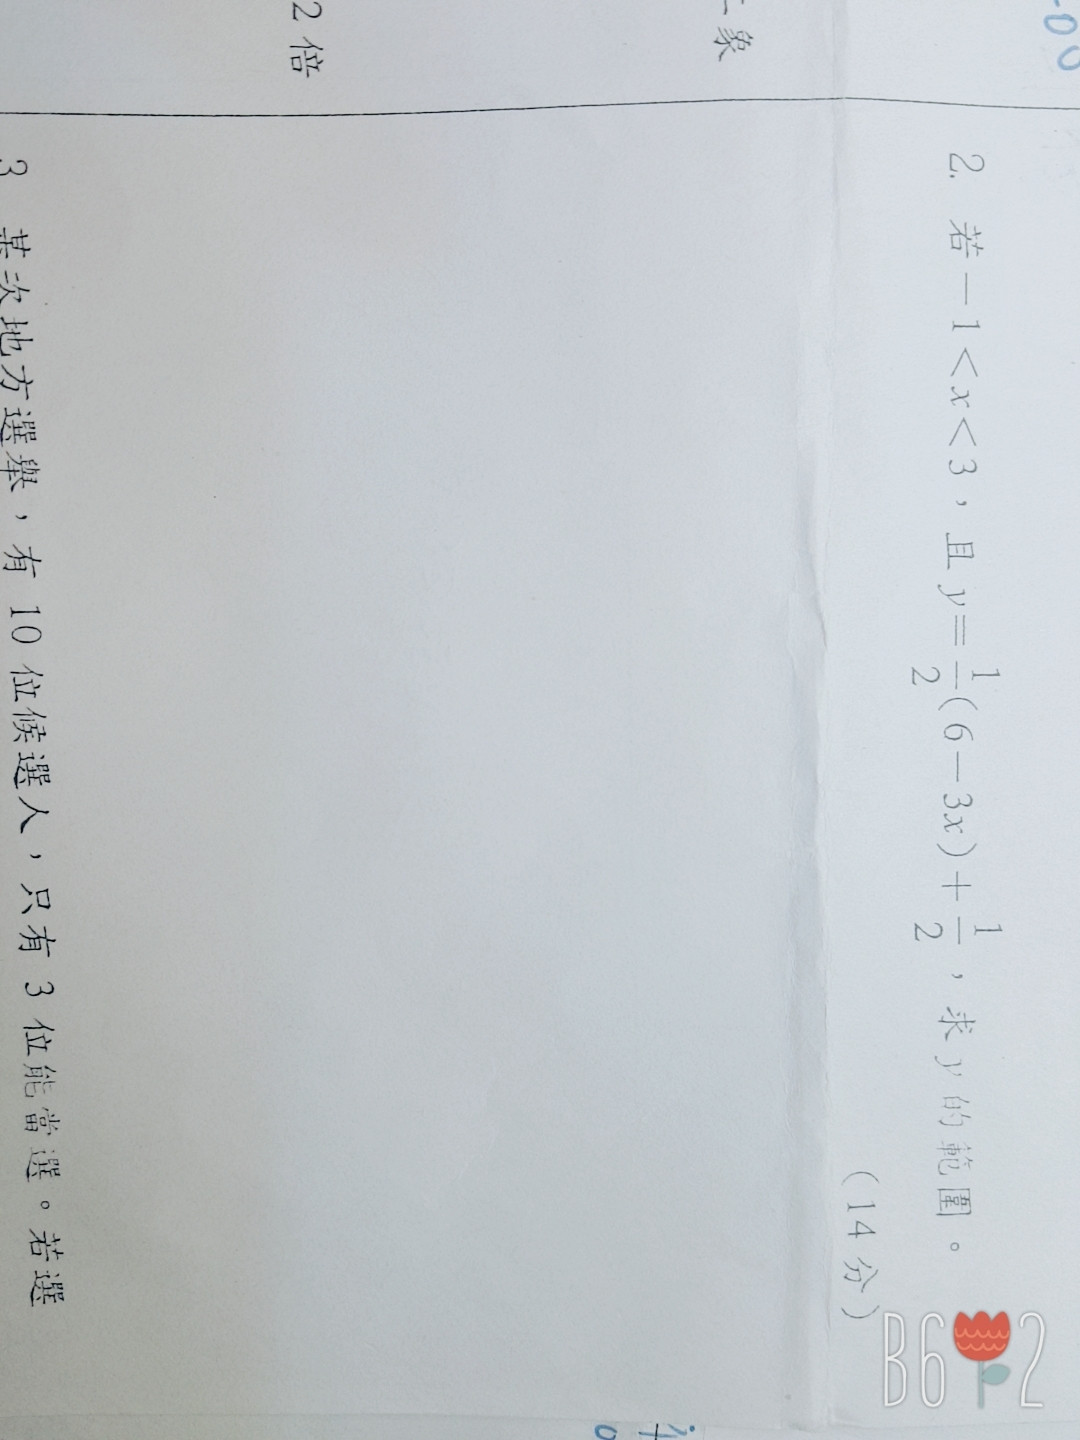 2. 若－1＜x＜3，且 y＝1/2(6－3x)＋1/2，求 y 的範圍。
（14 分）
3 某次地方選舉，有 10 位候選人，只有 3 位能當選。若選
象
2 倍
B6 2